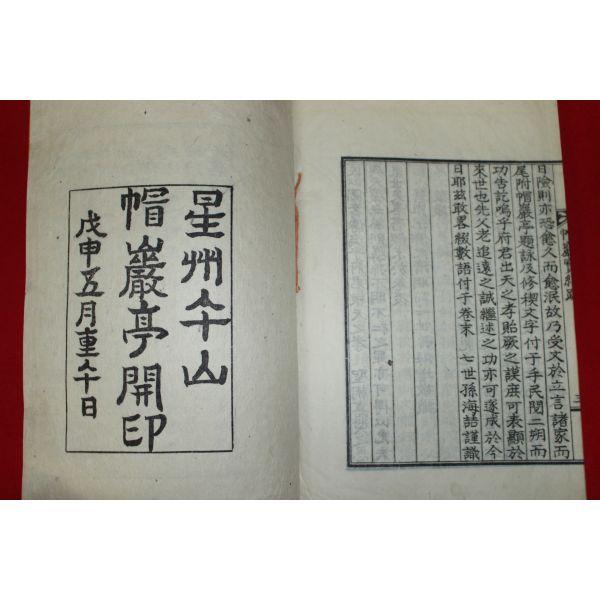 日險則亦恐愈久而愈泯故乃受文於立言諸家而
尾附帽巖亭題詠及修稧文字付于手民閱二朔而
功告訖嗚乎府君出天之孝貽厥之謨庶可表顯於
來世也先父老追遠之誠繼述之功亦可遂成於今
日耶玆敢畧綴數語付于卷末 七世孫海語謹識
三
星州午山
帽巖亭開印
戊申五月重午日